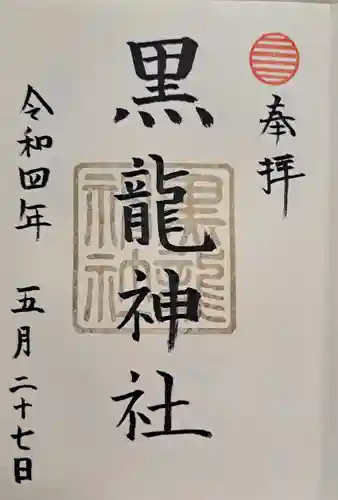 奉拝
黒龍神社
黒龍神社
令和四年 五月二十七日